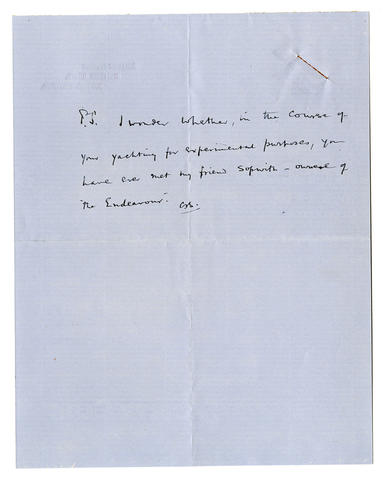 P.S. I wonder whether, in the course of
your yachting for experimental purposes, you
have ever met my friend Sopwith – owner of
the Endeavour.